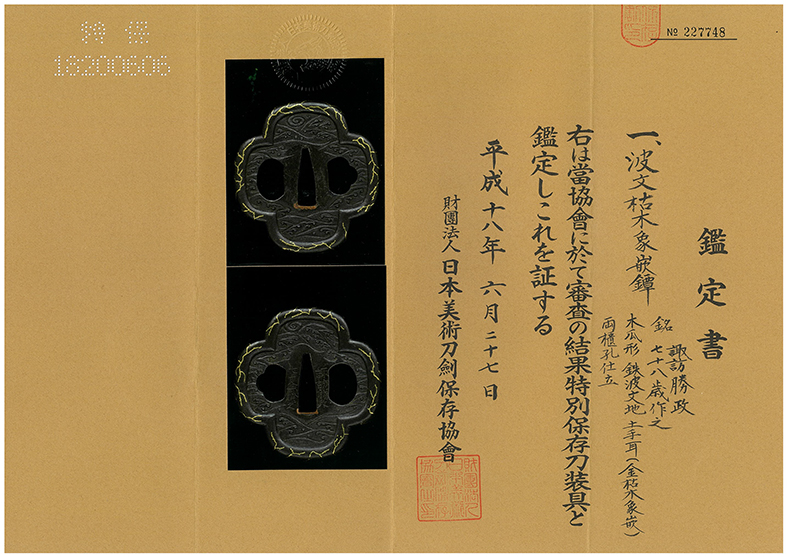 № 227748
鑑定書
一、波文枯木象嵌鐔
銘 諏訪勝政
七十八歳作之
木瓜形 鉄波文地 土手耳(金枯木象嵌)
両櫃孔仕立
右は當協會に於て審査の結果特別保存刀装具と
鑑定しこれを証する
平成十八年六月二十七日
財團法人 日本美術刀劍保存協會
特保
18200606